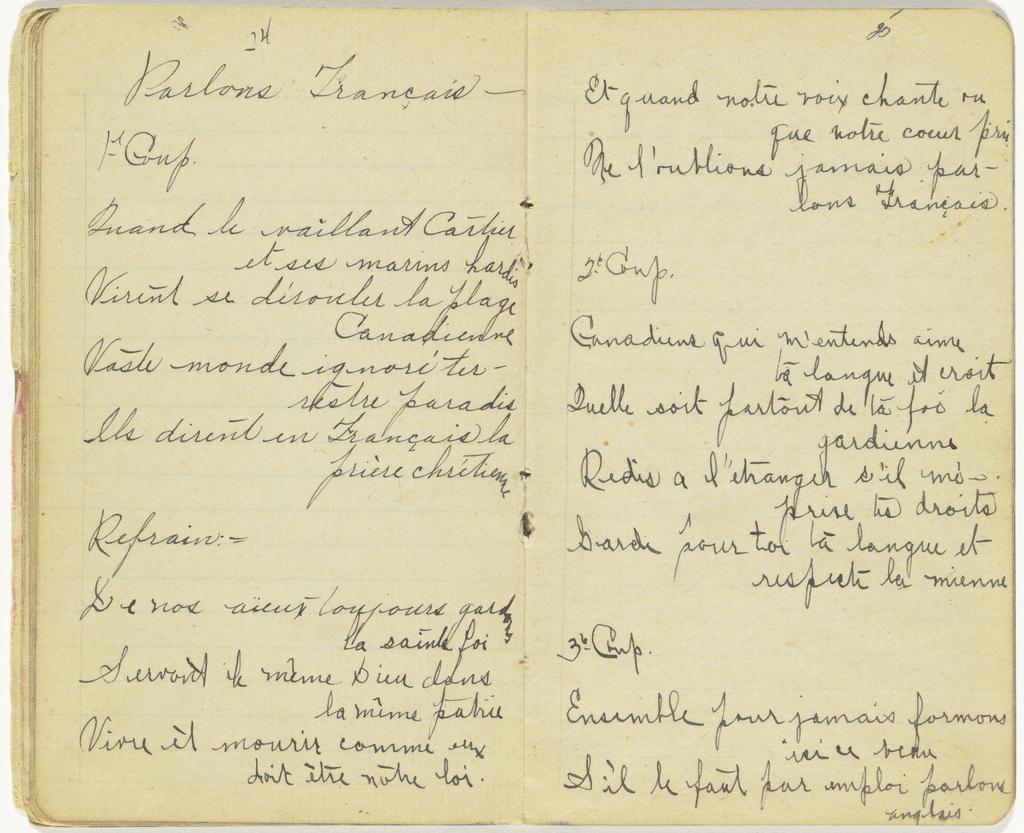 24
Parlons Français —
1er Coup.
Quand le vaillant Cartier
et ses marins hardis
Virent se dérouler la plage
Canadienne
Vaste monde ignoré ter-
restre paradis
Ils dirent en Français la
prière chrétienne
Refrain:-
De nos aïeux toujours gardons
la sainte foi
Servant le même Dieu dans
la même patrie
Vivre et mourir comme eux
doit être nôtre loi.
25
Et quand notre voix chante ou
que notre coeur prie
Ne l'oublions jamais par-
lons Français.
2e Coup.
Canadiens qui m'entends aime
ta langue et crois
Quelle soit partout de ta foi la
gardienne
Redis a l'étranger s'il mé-
prise tes droits
Garde pour toi ta langue et
respecte la mienne
3e Coup.
Ensemble pour jamais formons
ici ce beau
S'il le faut par emploi parlons
anglais.